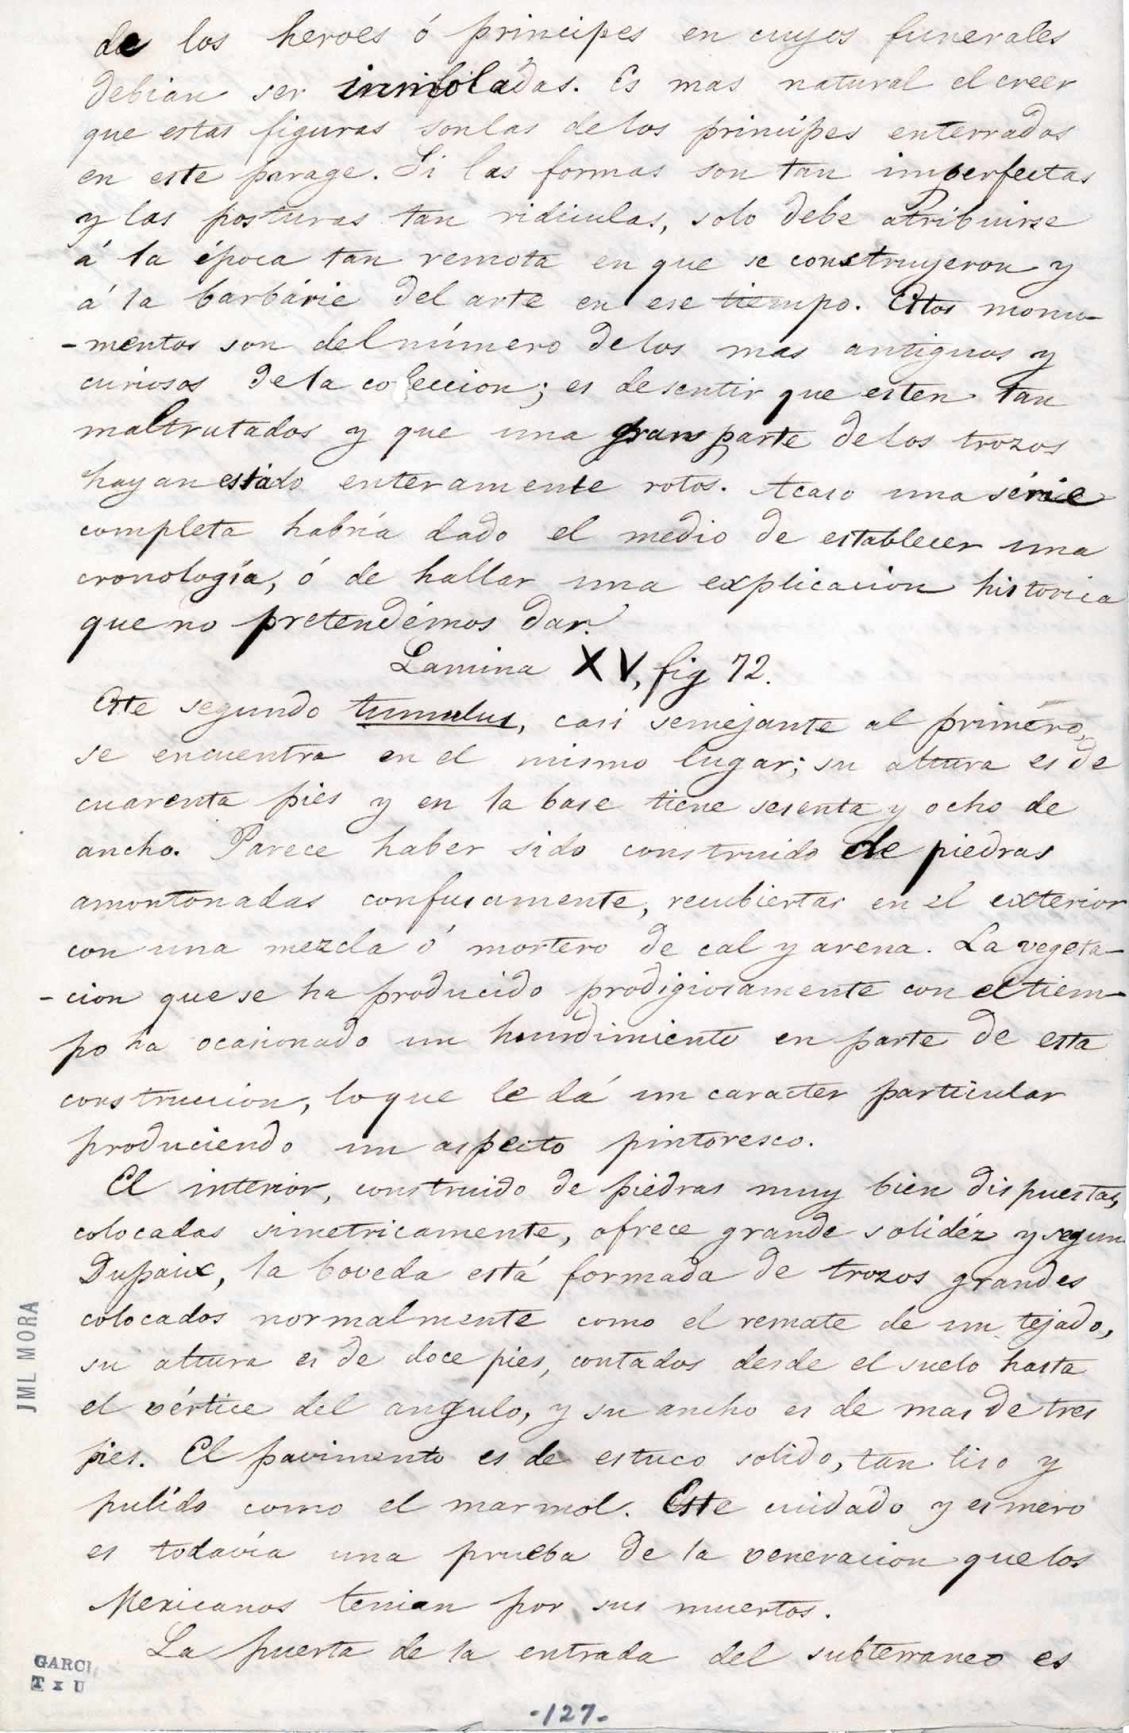 de los heroes ó principes en cuyos funerales
debian ser inmoladas. Es mas natural el creer
que estas figuras son las de los principes enterrados
en este parage. Si las formas son tan imperfectas
y las posturas tan ridiculas, solo debe atribuirse
á la época tan remota en que se construyeron y
á la barbárie del arte en ese tiempo. Estos monu-
-mentos son del número de los mas antiguos y
curiosos de la coleccion; es de sentir que esten tan
maltrutados y que una gran parte de los trozos
hayan estado enteramente rotos. Acaso una série
completa habría dado el medio de establecer una
cronología, ó de hallar una explicacion historica
que no pretendémos dar.
Lamina XV, fig 72.
Este segundo tumulus, casi semejante al primero,
se encuentra en el mismo lugar; su altura es de
cuarenta pies y en la base tiene sesenta y ocho de
ancho. Parece haber sido construido de piedras
amontonadas confusamente, recubiertas en el exterior
con una mezcla ó mortero de cal y arena. La vegeta-
-cion que se ha producido prodigiosamente con el tiem-
po ha ocasionado un hundimiento en parte de esta
construccion, lo que le dá un caracter particular
produciendo un aspecto pintoresco.
El interior, construido de piedras muy bien dispuestas,
colocadas simetricamente, ofrece grande solidéz y segun
Dupaix, la boveda está formada de trozos grandes
colocados normalmente como el remate de un tejado,
su altura es de doce pies, contados desde el suelo hasta
el vértice del angulo, y su ancho es de mas de tres
pies. El pavimento es de estuco solido, tan liso y
pulido como el marmol. Este cuidado y esmero
es todavía una prueba de la veneracion que los
Mexicanos tenian por sus muertos.
La puerta de la entrada del subterraneo es
JML MORA
GARCI
TXU
-127-